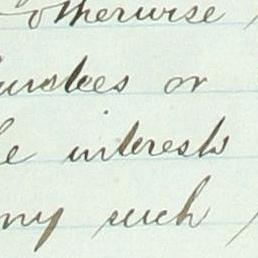 otherwise
trustees or
he interests
any such